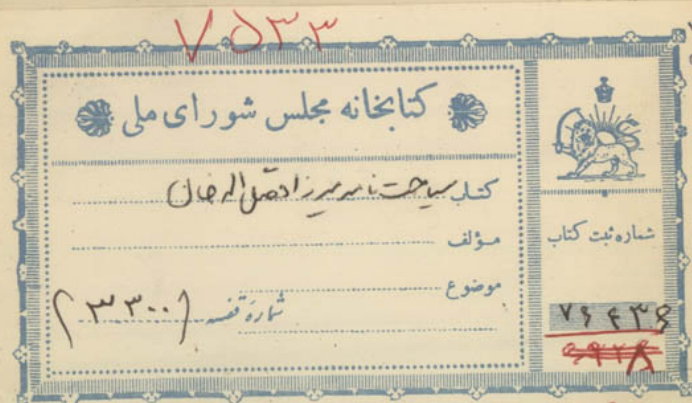 ۷۵۳۳
کتابخانه مجلس شورای ملی
کتاب سیاحت نامه میرزا فضل اله خان
مؤلف
موضوع
شمارهٔ قفسه (۳۳۰۰)
شماره ثبت کتاب
۷۶۴۳۶